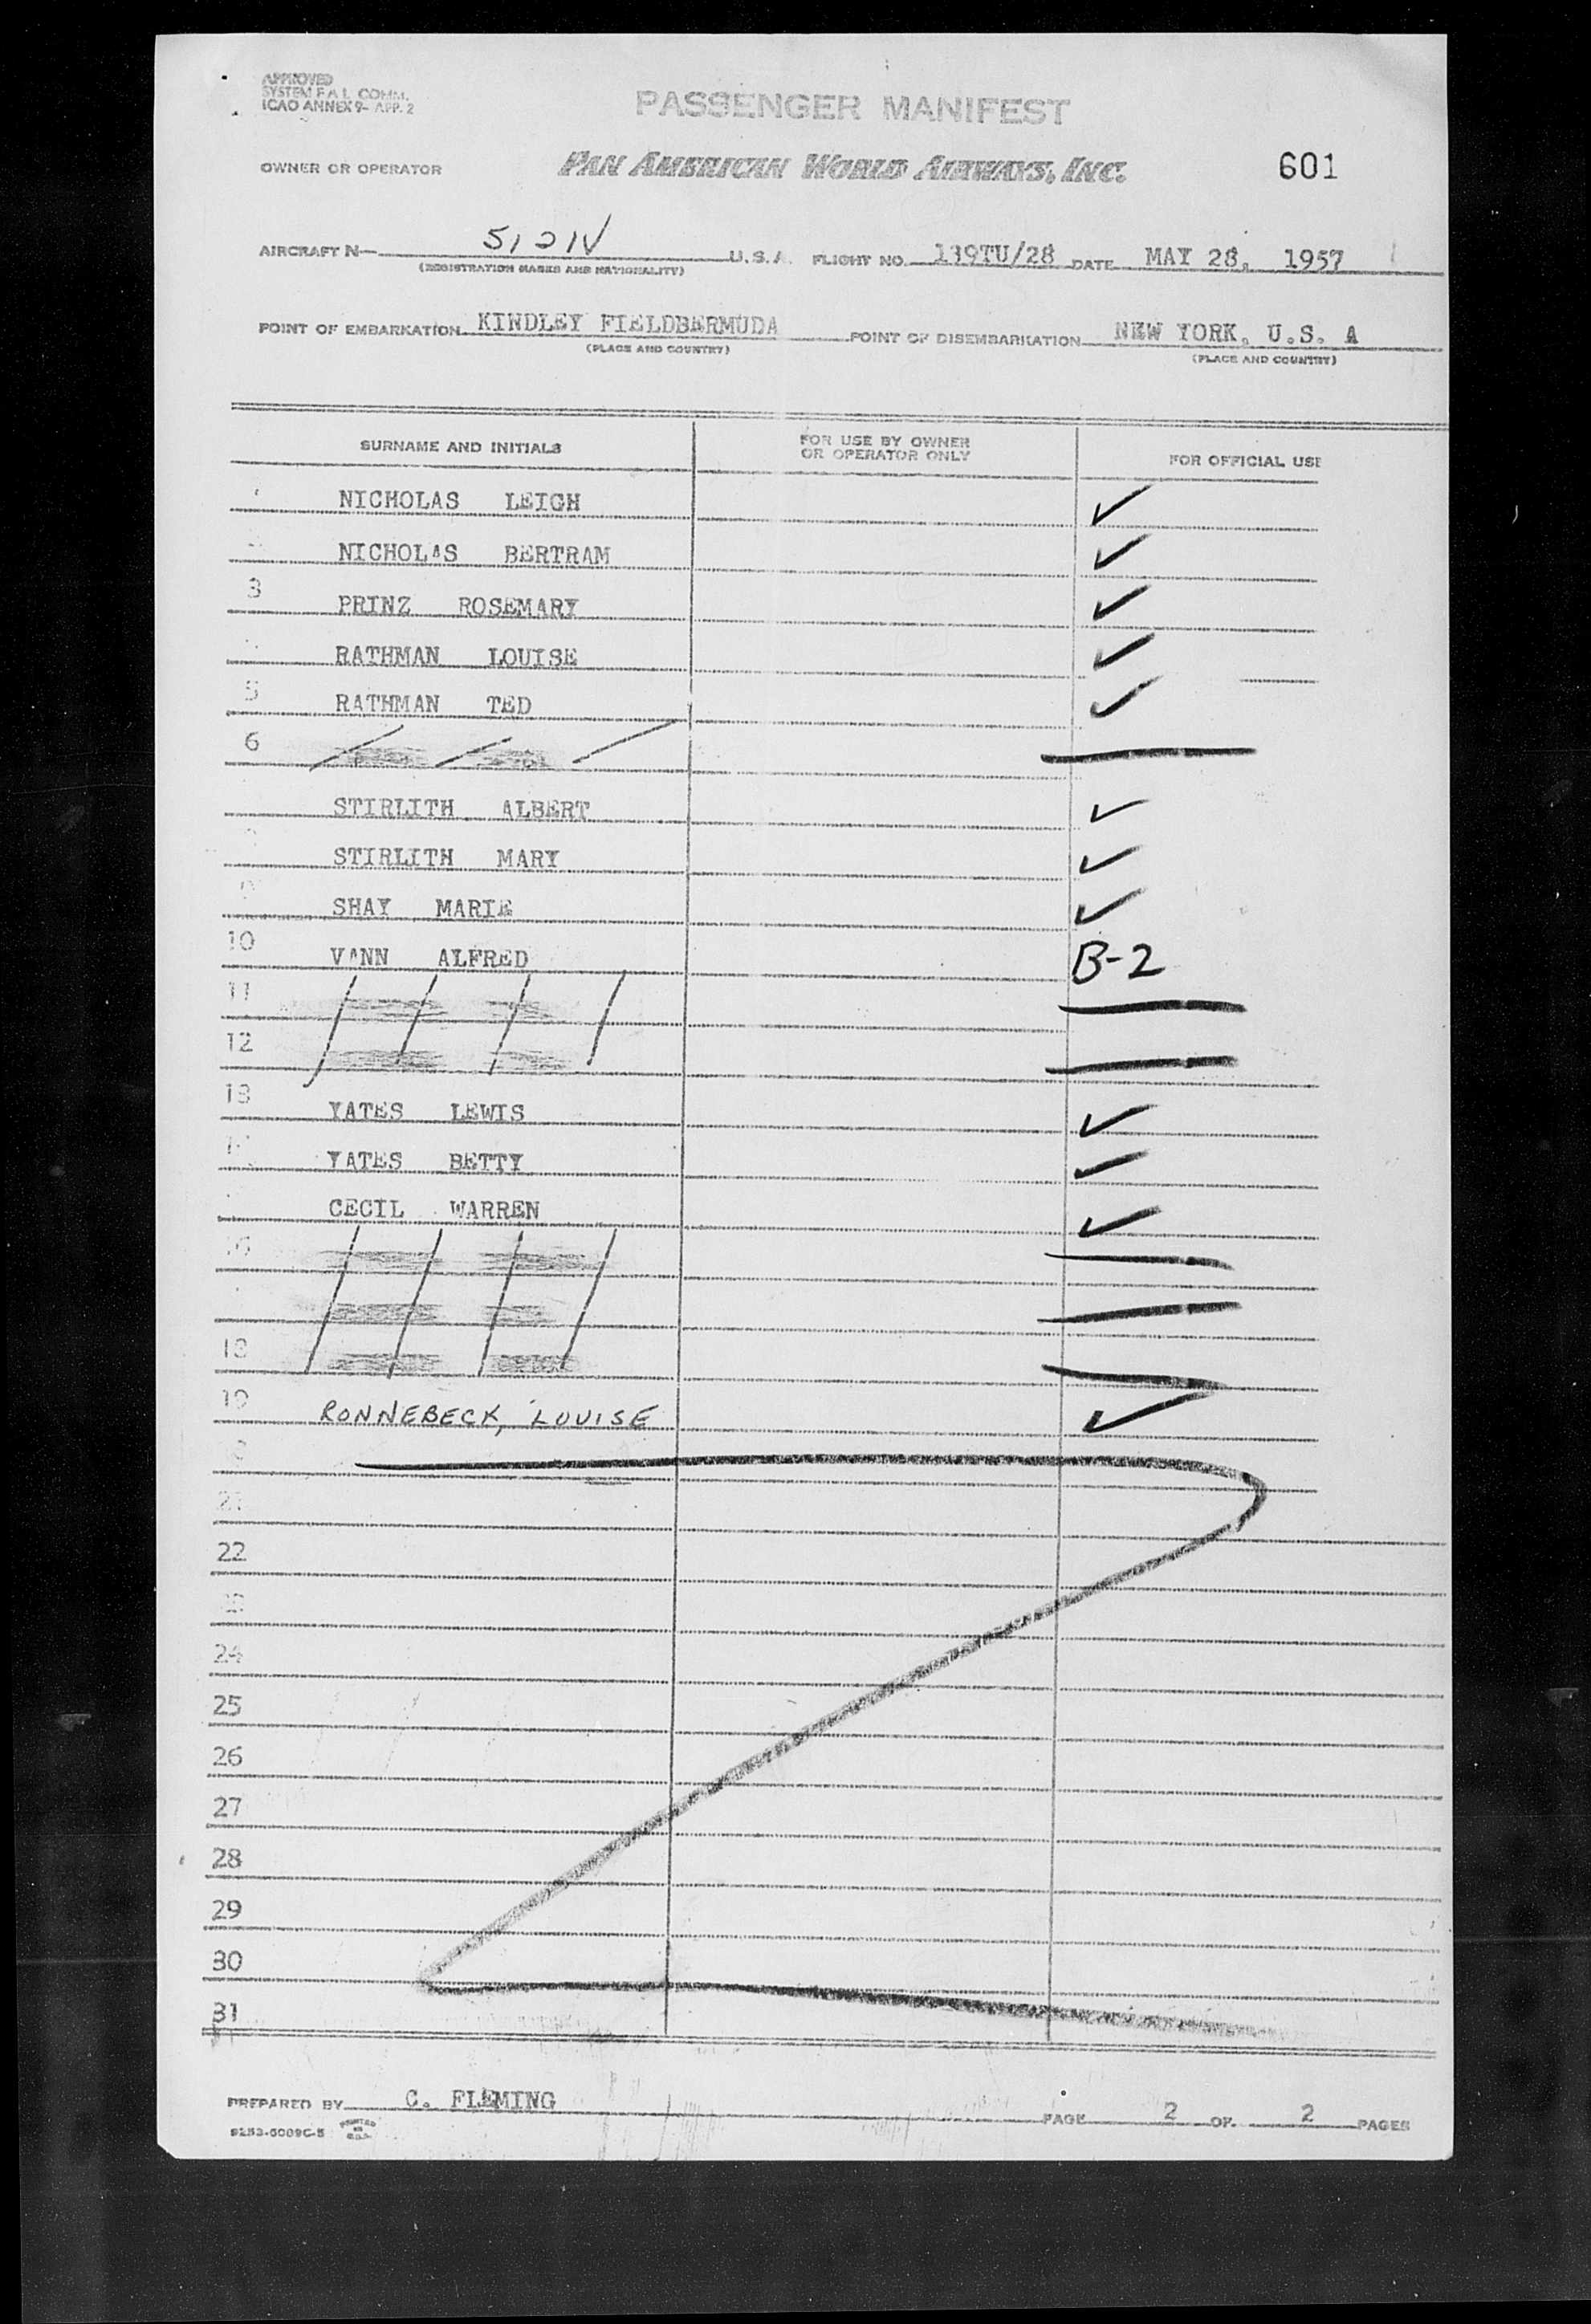 APPROVED
SYSTEM F.A.L. COMM.
ICAO ANNEX 9- APP. 2
PASSENGER MANIFEST
OWNER OR OPERATOR PAN AMERICAN WORLD AIRWAYS, INC. 601
AIRCRAFT N— U.S.A. FLIGHT NO. 139TU/28 DATE MAY 28, 1957
(REGISTRATION MARKS AND NATIONALITY)
POINT OF EMBARKATION KINDLEY FIELDBERMUDA POINT OF DISEMBARKATION NEW YORK, U.S. A
(PLACE AND COUNTRY) (PLACE AND COUNTRY)
SURNAME AND INITIALS FOR USE BY OWNER OR OPERATOR ONLY FOR OFFICIAL USE
NICHOLAS LEIGH ✓
NICHOLAS BERTRAM ✓
3 PRINZ ROSEMARY ✓
RATHMAN LOUISE ✓
5 RATHMAN TED ✓
6
STIRLITH ALBERT ✓
STIRLITH MARY ✓
SHAY MARIE ✓
10 VANN ALFRED B-2
11
12
13 YATES LEWIS ✓
YATES BETTY ✓
CECIL WARREN ✓
16
18
19 RONNEBECK, LOUISE ✓
21
22
24
25
26
27
28
29
30
31
PREPARED BY C. FLEMING PAGE 2 OF 2 PAGES